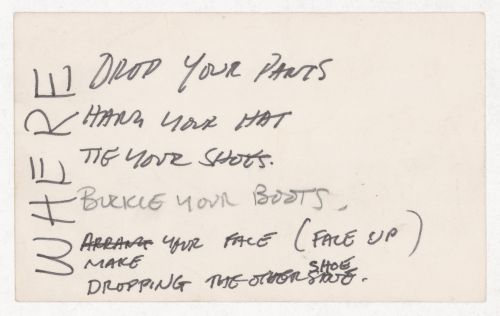 WHERE
DROP YOUR PANTS
HANG YOUR HAT
TIE YOUR SHOES.
BUCKLE YOUR BOOTS.
ARRANGE YOUR FACE (FACE UP)
MAKE
SHOE
DROPPING THE OTHER SHOE.